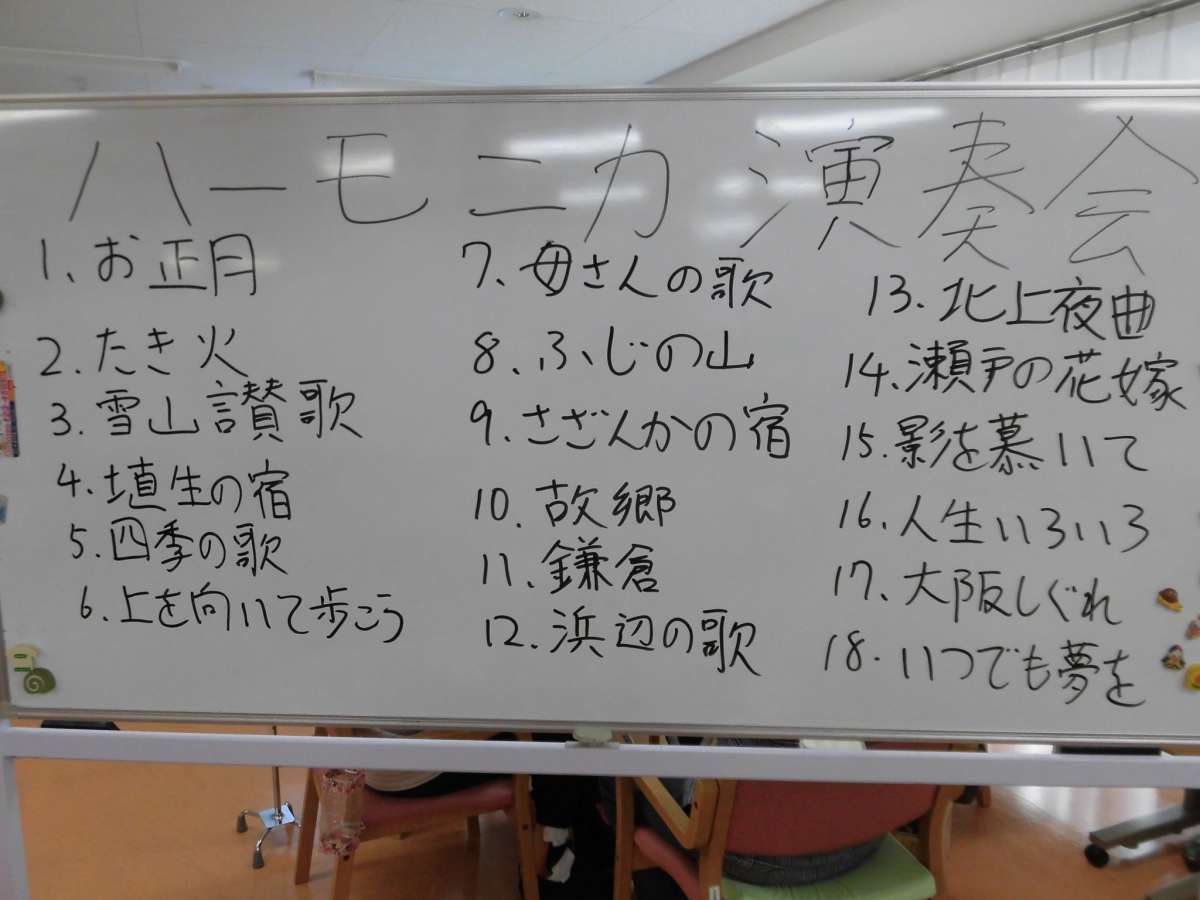 ハーモニカ演奏会
1、お正月
2.たき火
3.雪山讃歌
4.埴生の宿
5.四季の歌
6.上を向いて歩こう
7、母さんの歌
8.ふじの山
9.さざんかの宿
10.故郷
11.鎌倉
12.浜辺の歌
13.北上夜曲
14.瀬戸の花嫁
15.影を慕いて
16.人生いろいろ
17.大阪しぐれ
18.いつでも夢を